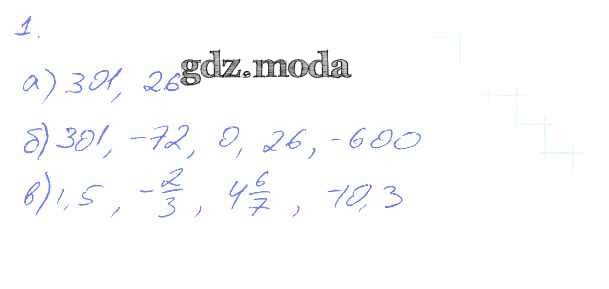 1.
а) 301, 26
gdz.moda
б) 301, -72, 0, 26, -600
в) 1,5, -2/3, 4 6/7, -10,3